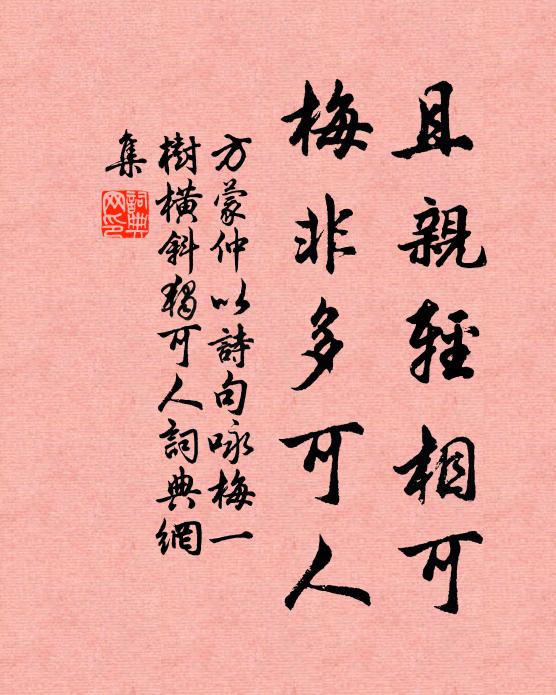 且親輕相可
梅非多可人
方蒙仲以詩句咏梅一
樹橫斜獨可人詞典網
集
詞典
网印